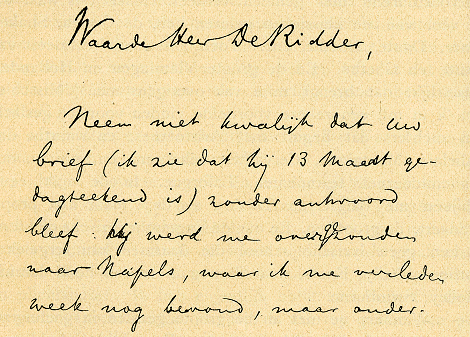 Waarde Heer De Ridder,
Neem niet kwalijk dat uw
brief (ik zie dat hij 13 Maart ge-
dagteekend is) zonder antwoord
bleef. Hij werd me overgezonden
naar Napels, waar ik me verleden
week nog bevond, maar onder-